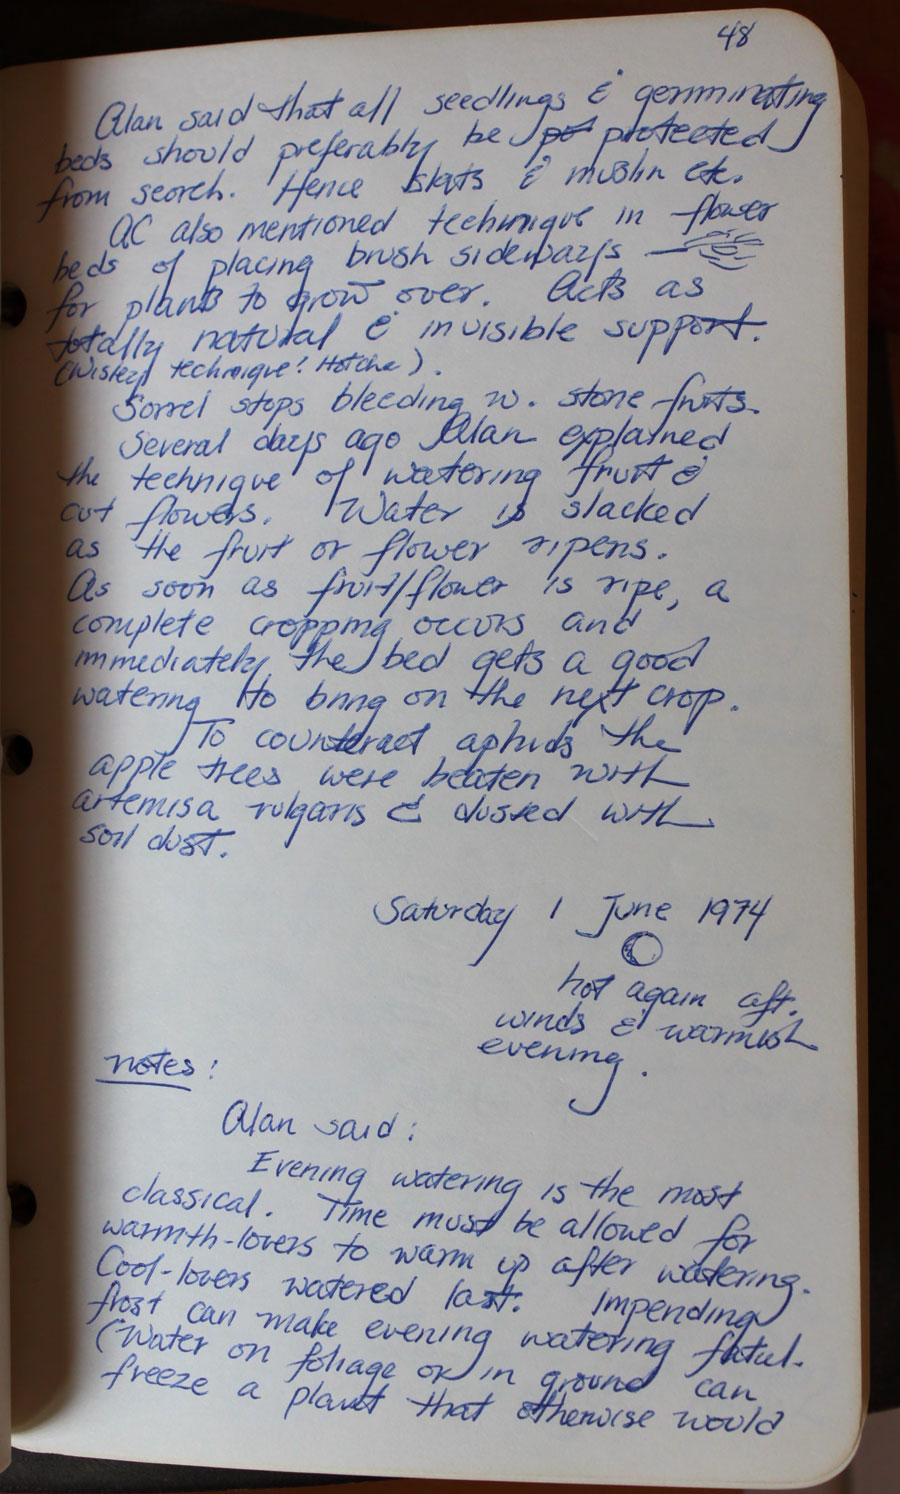 48
Alan said that all seedlings & germinating
beds should preferably be pot protected
from scorch. Hence slats & muslin etc.
AC also mentioned technique in flower
beds of placing brush sideways
for plants to grow over. Acts as
totally natural & invisible support.
(Wisley technique! Hotcha).
Sorrel stops bleeding w. stone fruits.
Several days ago Alan explained
the technique of watering fruit &
cut flowers. Water is slacked
as the fruit or flower ripens.
As soon as fruit/flower is ripe, a
complete cropping occurs and
immediately the bed gets a good
watering to bring on the next crop.
To counteract aphids the
apple trees were beaten with
artemisa vulgaris & dusted with
soil dust.
Saturday 1 June 1974
hot again aft.
winds & warmish
evening.
notes:
Alan said:
Evening watering is the most
classical. Time must be allowed for
warmth-lovers to warm up after watering.
Cool-lovers watered last. Impending
frost can make evening watering fatal.
(Water on foliage or in ground can
freeze a plant that otherwise would